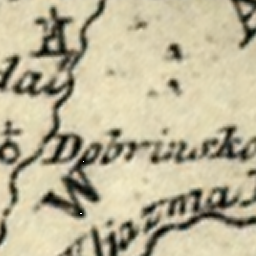 dai
Dobrinsko
W
ljazma